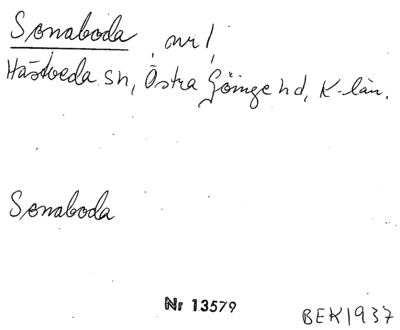 Sonaboda, nr 1,
Hästveda sn, Östra Göinge hd, K-län.
Sonaboda
Nr 13579
BEK1937